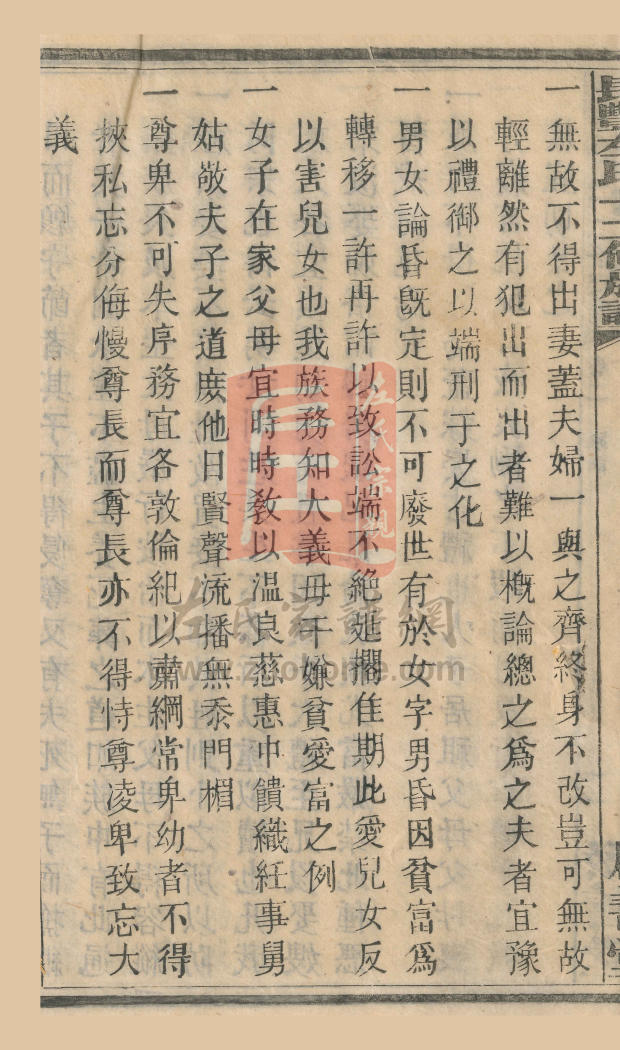 一無故不得出妻蓋夫婦一與之齊終身不改豈可無故
輕離然有犯出而出者難以概論總之爲之夫者宜豫
以禮御之以端刑于之化
一男女論昏旣定則不可廢世有於女字男昏因貧富爲
轉移一許再許以致訟端不絶延擱佳期此愛兒女反
以害兒女也我族務知大義毋干嫌貧愛富之例
一女子在家父母宜時時敎以温良慈惠中饋織紝事舅
姑敬夫子之道庶他日賢聲流播無忝門楣
一尊卑不可失序務宜各敦倫紀以肅綱常卑幼者不得
挾私忘分侮慢尊長而尊長亦不得恃尊凌卑致忘大
義
左氏宗親
左氏家譜網
www.zuohome.com